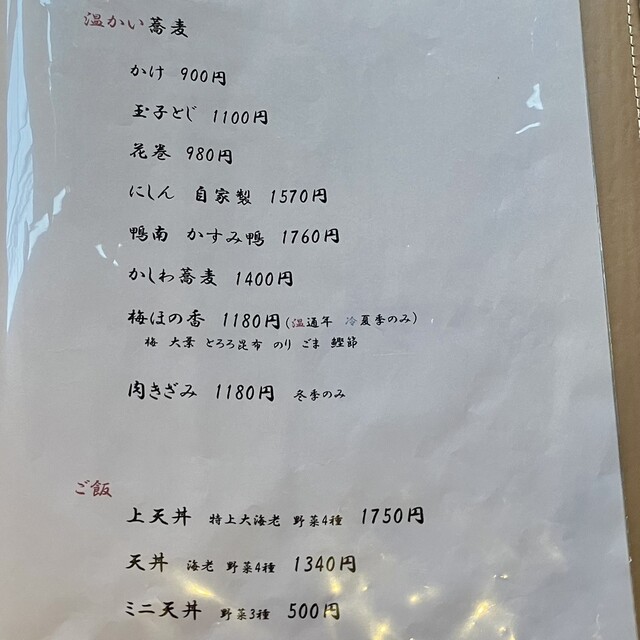 温かい蕎麦
かけ 900円
玉子とじ 1100円
花巻 980円
にしん 自家製 1570円
鴨南 かすみ鴨 1760円
かしわ蕎麦 1400円
梅ほの香 1180円(温通年 冷夏季のみ)
梅 大葉 とろろ昆布 のり ごま 鰹節
肉きざみ 1180円 冬季のみ
ご飯
上天丼 特上大海老 野菜4種 1750円
天丼 海老 野菜4種 1340円
ミニ天丼 野菜3種 500円